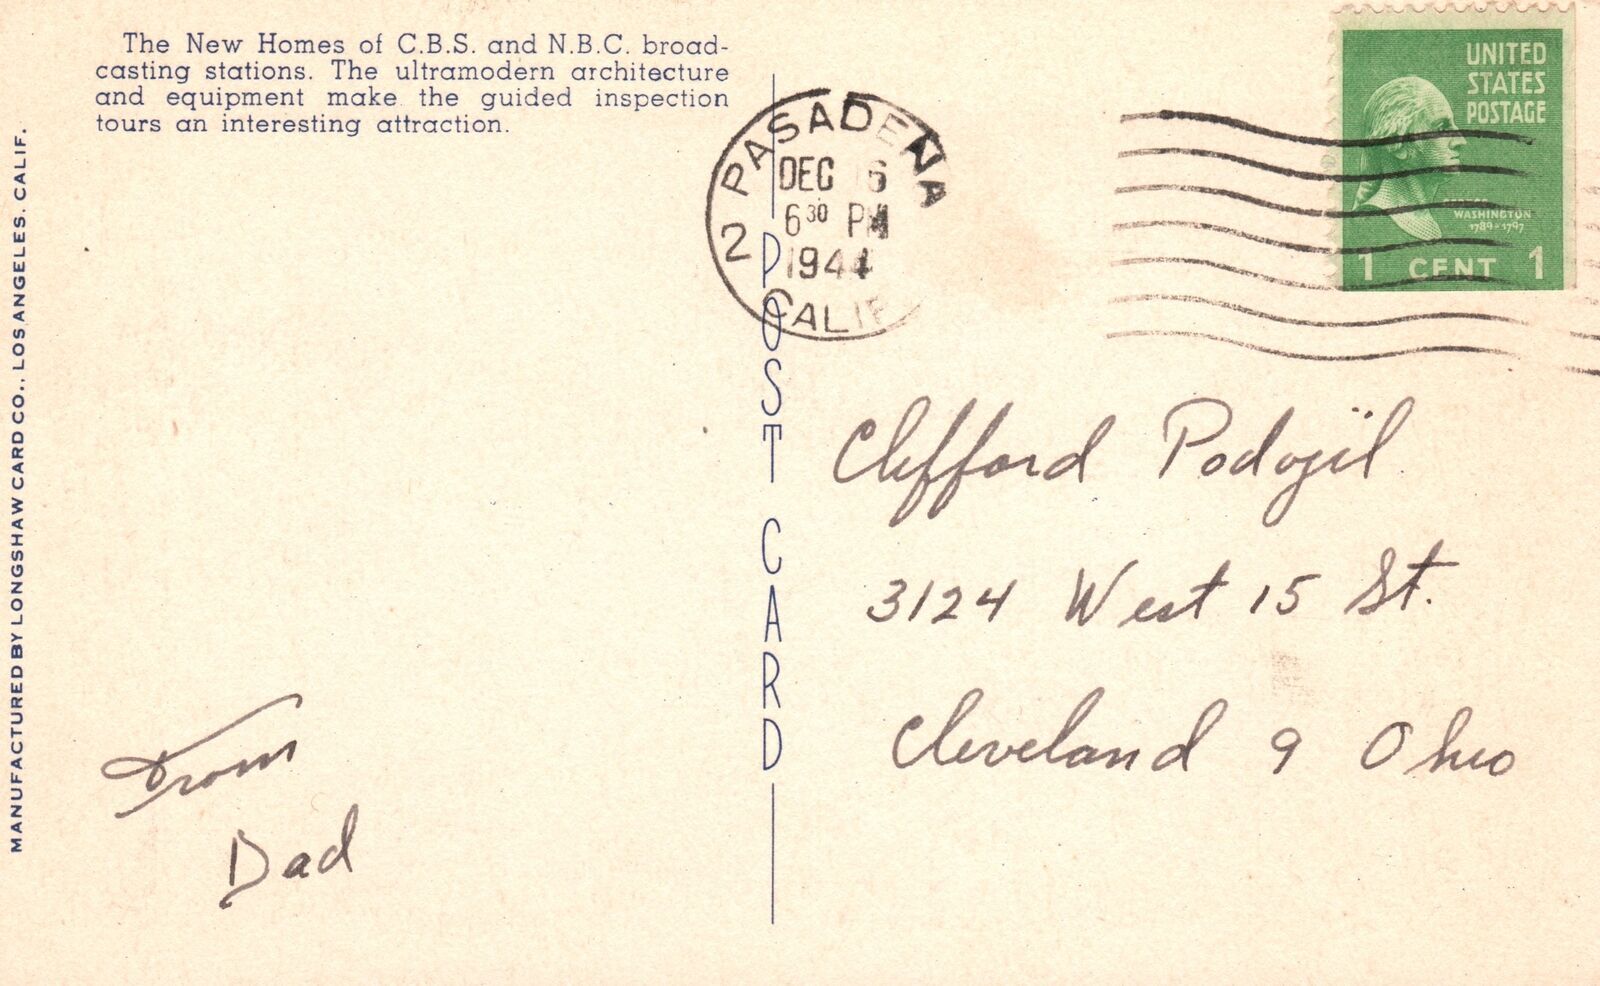 The New Homes of C.B.S. and N.B.C. broad-
casting stations. The ultramodern architecture
and equipment make the guided inspection
tours an interesting attraction.
MANUFACTURED BY LONGSHAW CARD CO., LOS ANGELES, CALIF.
POST CARD
2 PASADENA
DEC 16
6 30 PM
1944
CALIF
UNITED
STATES
POSTAGE
WASHINGTON
1789-1797
1 CENT 1
Clifford Podojil
3124 West 15 St.
Cleveland 9 Ohio
From
Dad